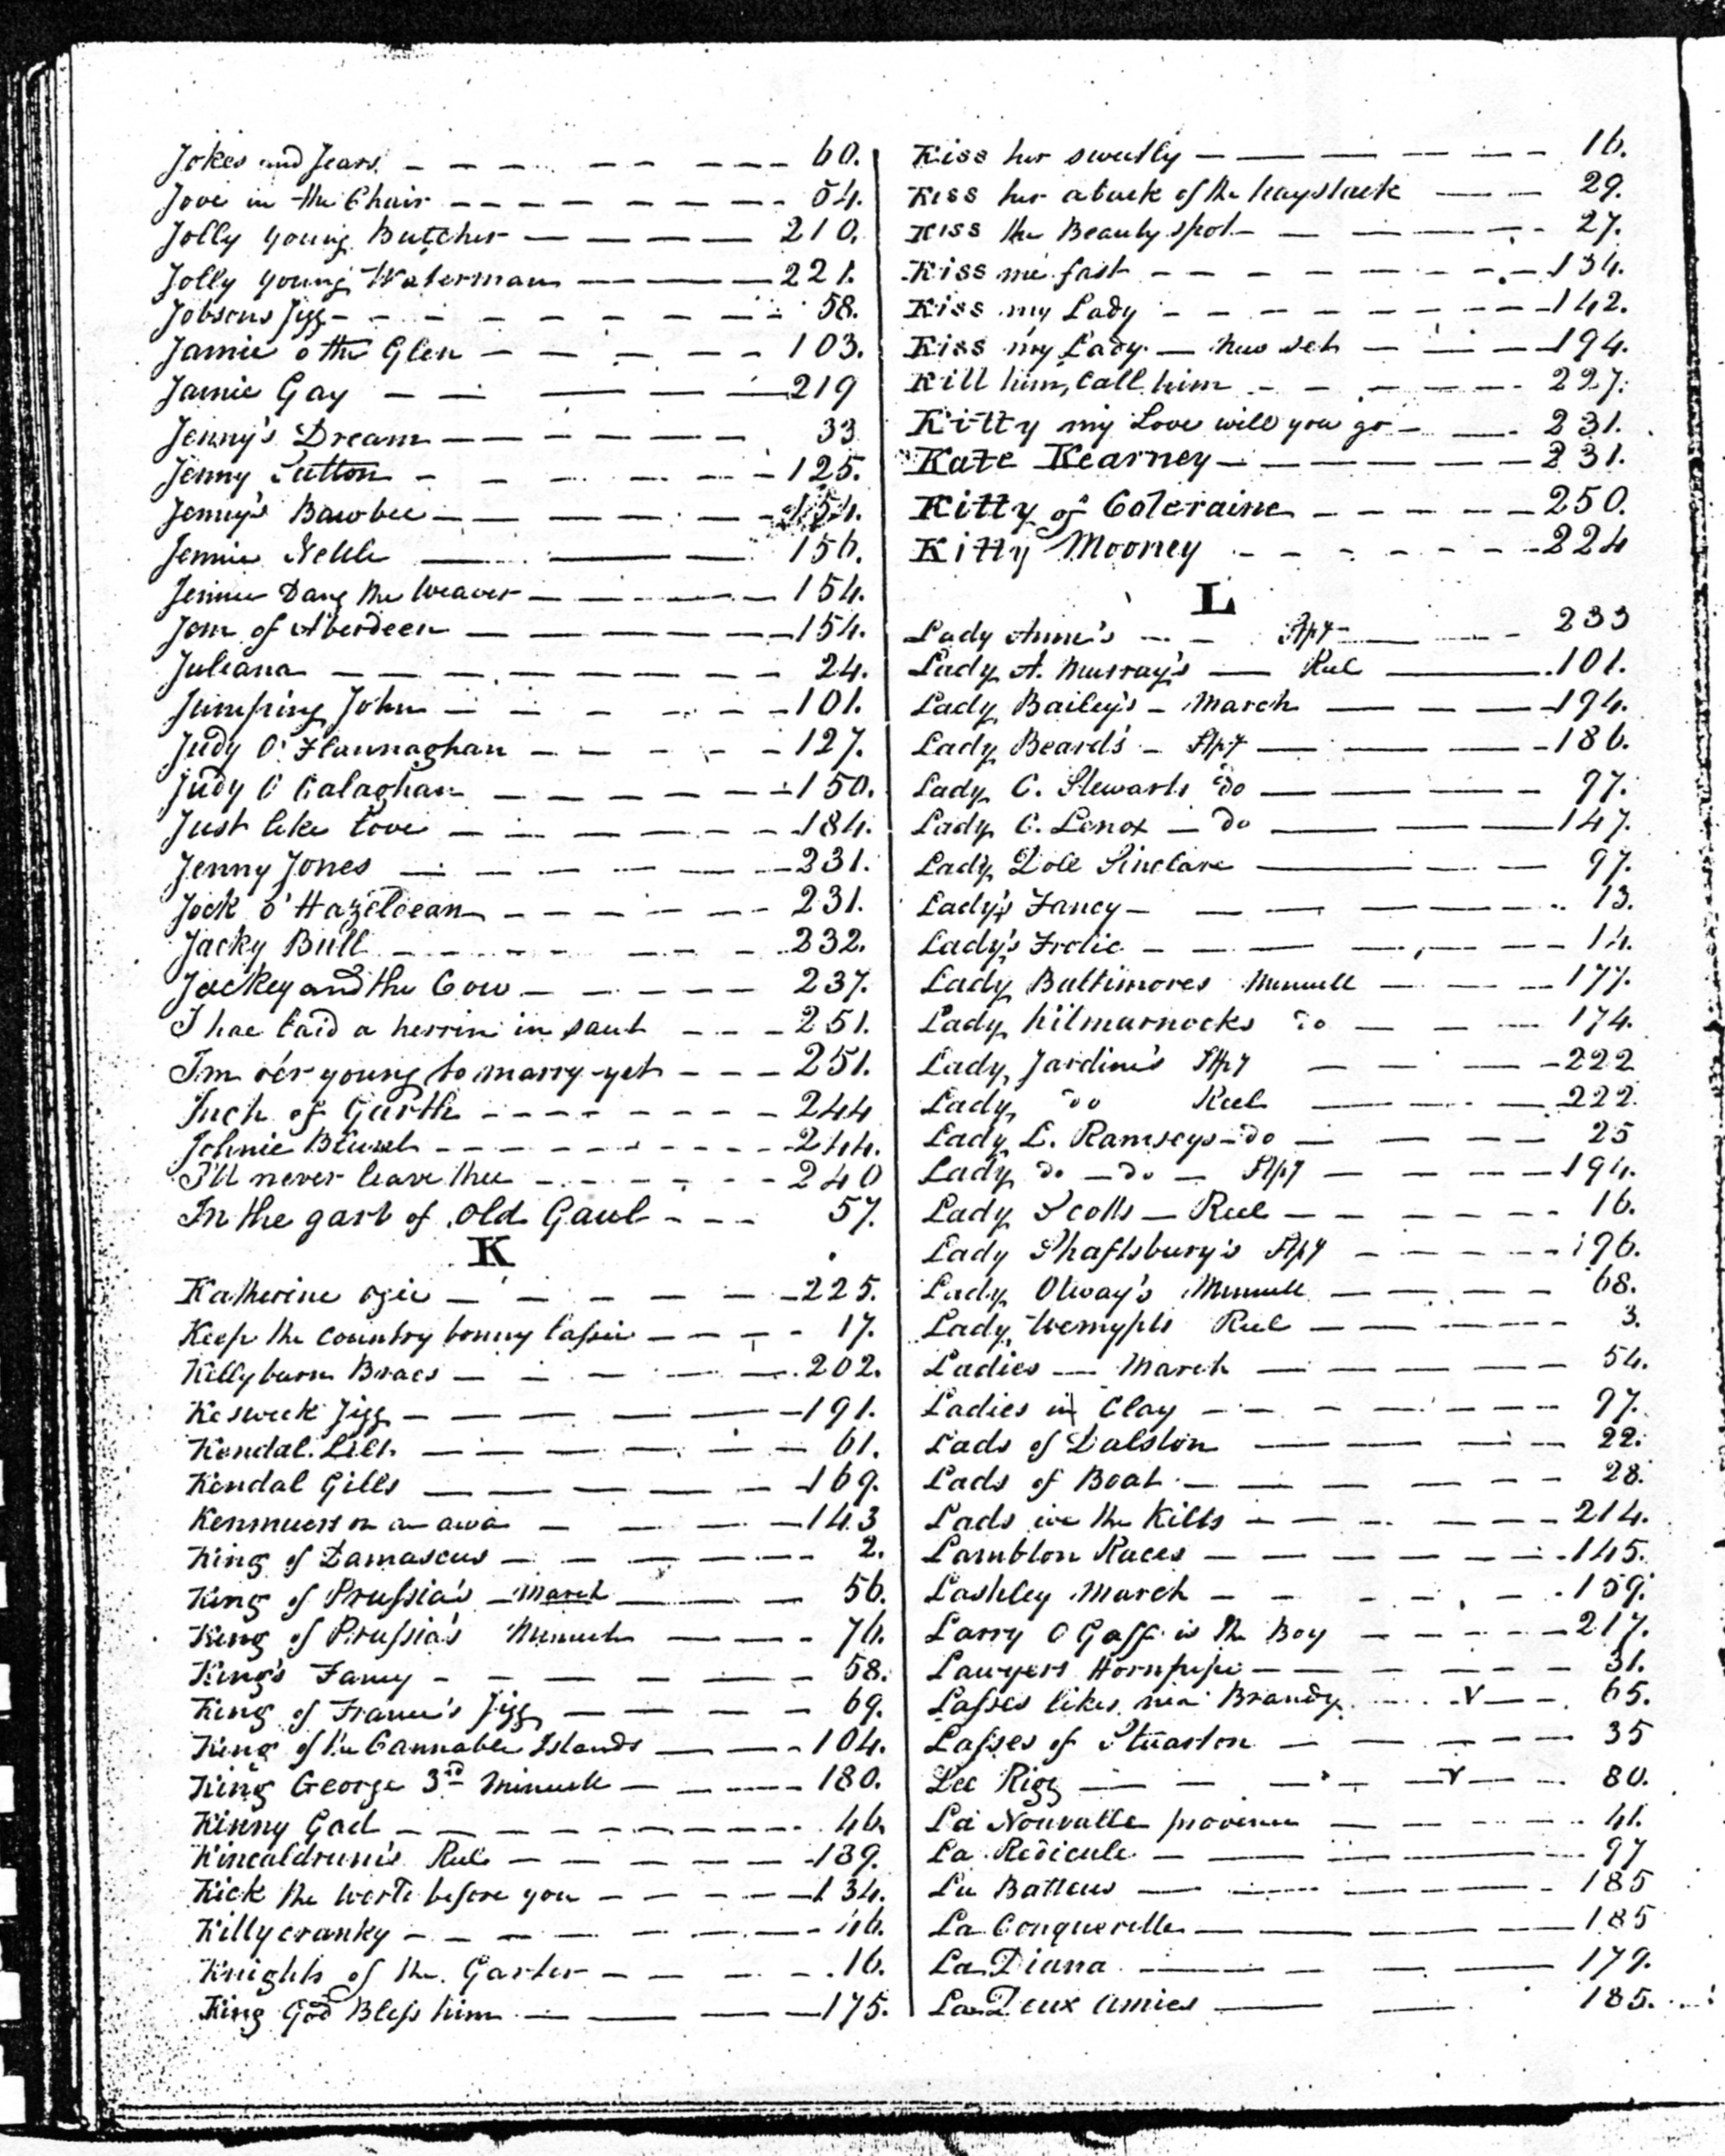 Jokes and Jears 60.
Jove in the Chair 54.
Jolly young Butcher 210.
Jolly young Waterman 221.
Jobsons Jigg 58.
Jamie o the Glen 103.
Jamie Gay 219
Jenny's Dream 33
Jenny Sutton 125.
Jenny's Bawbee 154.
Jennie Nettle 156.
Jennie Dang the Weaver 154.
Jem of Aberdeen 154.
Juleana 24.
Jumping John 101.
Judy O' Flannaghan 127.
Judy O Calaghan 150.
Just like Love 184.
Jenny Jones 231.
Jock o' Hazeldean 231.
Jacky Bull 232.
Jackey and the Cow 237.
I hae laid a herrin in saut 251.
I'm o'er young to marry yet 251.
Inch of Garth 244
Johnie 244.
I'll never leave thee 240
In the garb of Old Gaul 57.
K
Katherine ogie 225.
Keep the Country bonny lassie 17.
Kellyburn Braes 202.
Keswick Jigg 191.
Kendal Lilt 61.
Kendal Gills 169.
Kenmuers on an awa 143
King of Damascus 2.
King of Prussia's March 56.
King of Prussia's Minuet 76.
King's Fancy 58.
King of France's Jigg 69.
King of the Cannable Islands 104.
King George 3rd Minuett 180.
Kinny Gad 46.
Kincaldrum's Reel 189.
Kick the World before you 134.
Killycranky 46.
Knights of the Garter 16.
King God Bless him 175.
Kiss her sweetly 16.
Kiss her aback of the haystack 29.
Kiss the Beauty spot 27.
Kiss me fast 134.
Kiss my Lady 142.
Kiss my Lady — New set 194.
Kill him, Call him 227.
Kitty my Love will you go 231.
Kate Kearney 231.
Kitty of Coleraine 250.
Kitty Mooney 224
L
Lady Anne's Hpy 233
Lady A. Murray's — Reel 101.
Lady Bailey's – March 194.
Lady Beard's – Hpy 186.
Lady C. Stewarts do 97.
Lady C. Lenox — do 147.
Lady Doll Sinclare 97.
Lady's Fancy 13.
Lady's Frolic 14.
Lady Baltimores Minuett 177.
Lady Kilmarnocks do 174.
Lady Jardine's Hpy 222
Lady do Reel 222.
Lady L. Ramseys – do 25
Lady do – do – Hpy 194.
Lady Scotts — Reel 16.
Lady Shaftsbury's Hpy 196.
Lady Otway's Minuett 68.
Lady Wemyss Reel 3.
Ladies — March 54.
Ladies in Clay 97.
Lads of Dalston 22.
Lads of Boat 28.
Lads wi the Kilts 214.
Lambton Races 145.
Lashley March 159.
Larry O Gaff is the Boy 217.
Lawyers Hornpipe 31.
Lasses likes nea Brandy 65.
Lasses of Stuarton 35
Lee Rigg 80.
La Nouvalle provence 41.
La Redicule 97
La Batteus 185
La Conquerelle 185
La Diana 179.
La Deux Amies 185.